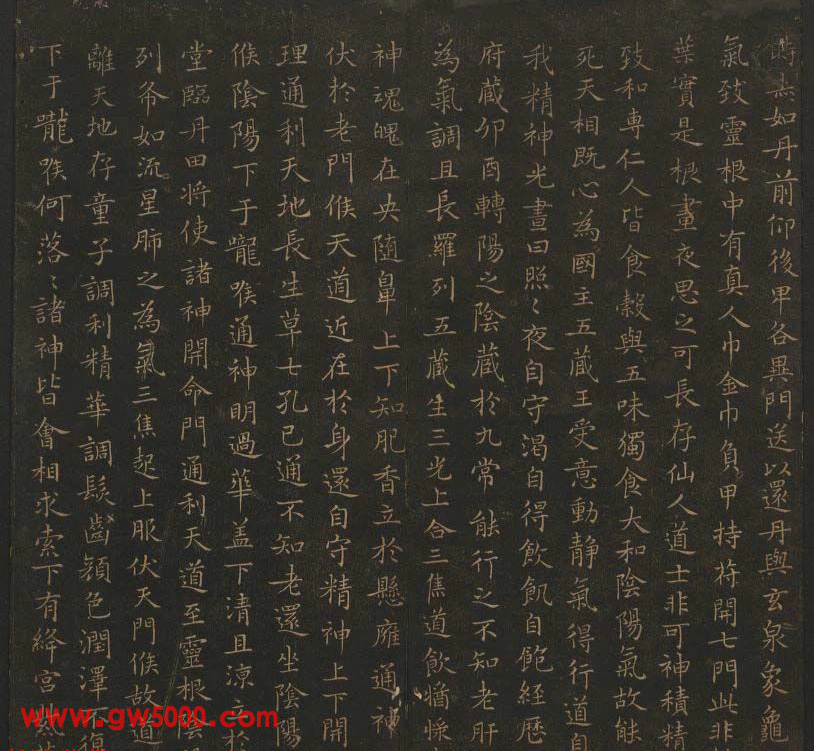 如丹前仰後卑各異門送以還丹與玄泉象龜
氣致靈根中有真人巾金巾負甲持苻開七門此非
葉實是根晝夜思之可長存仙人道士非可神積精
致和專仁人皆食穀與五味獨食大和陰陽氣故能
死天相既心為國主五藏王受意動靜氣得行道自
我精神光晝日照〻夜自守渴自得飲飢自飽經歷
府藏卯酉轉陽之陰藏於九常能行之不知老肝
為氣調且長羅列五藏生三光上合三焦道飲
神魂魄在央隨鼻上下知肥香立於懸廱通神
伏於老門候天道近在於身還自守精神上下開
理通利天地長生草七孔已通不知老還坐陰陽
候陰陽下于嚨喉通神明過華盖下清且涼
堂臨丹田將使諸神開命門通利天道至靈根陰
列布如流星肺之為氣三焦起上服伏天門候故道
離天地存童子調利精華調髮齒顏色潤澤不復
下于嚨喉何落〻諸神皆會相求索下有絳宮
www.gw5000.com